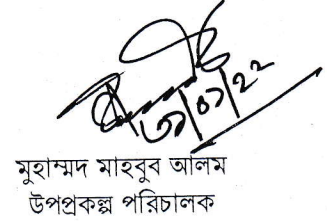 ৩১/০১/২২
মুহাম্মদ মাহবুব আলম
উপপ্রকল্প পরিচালক